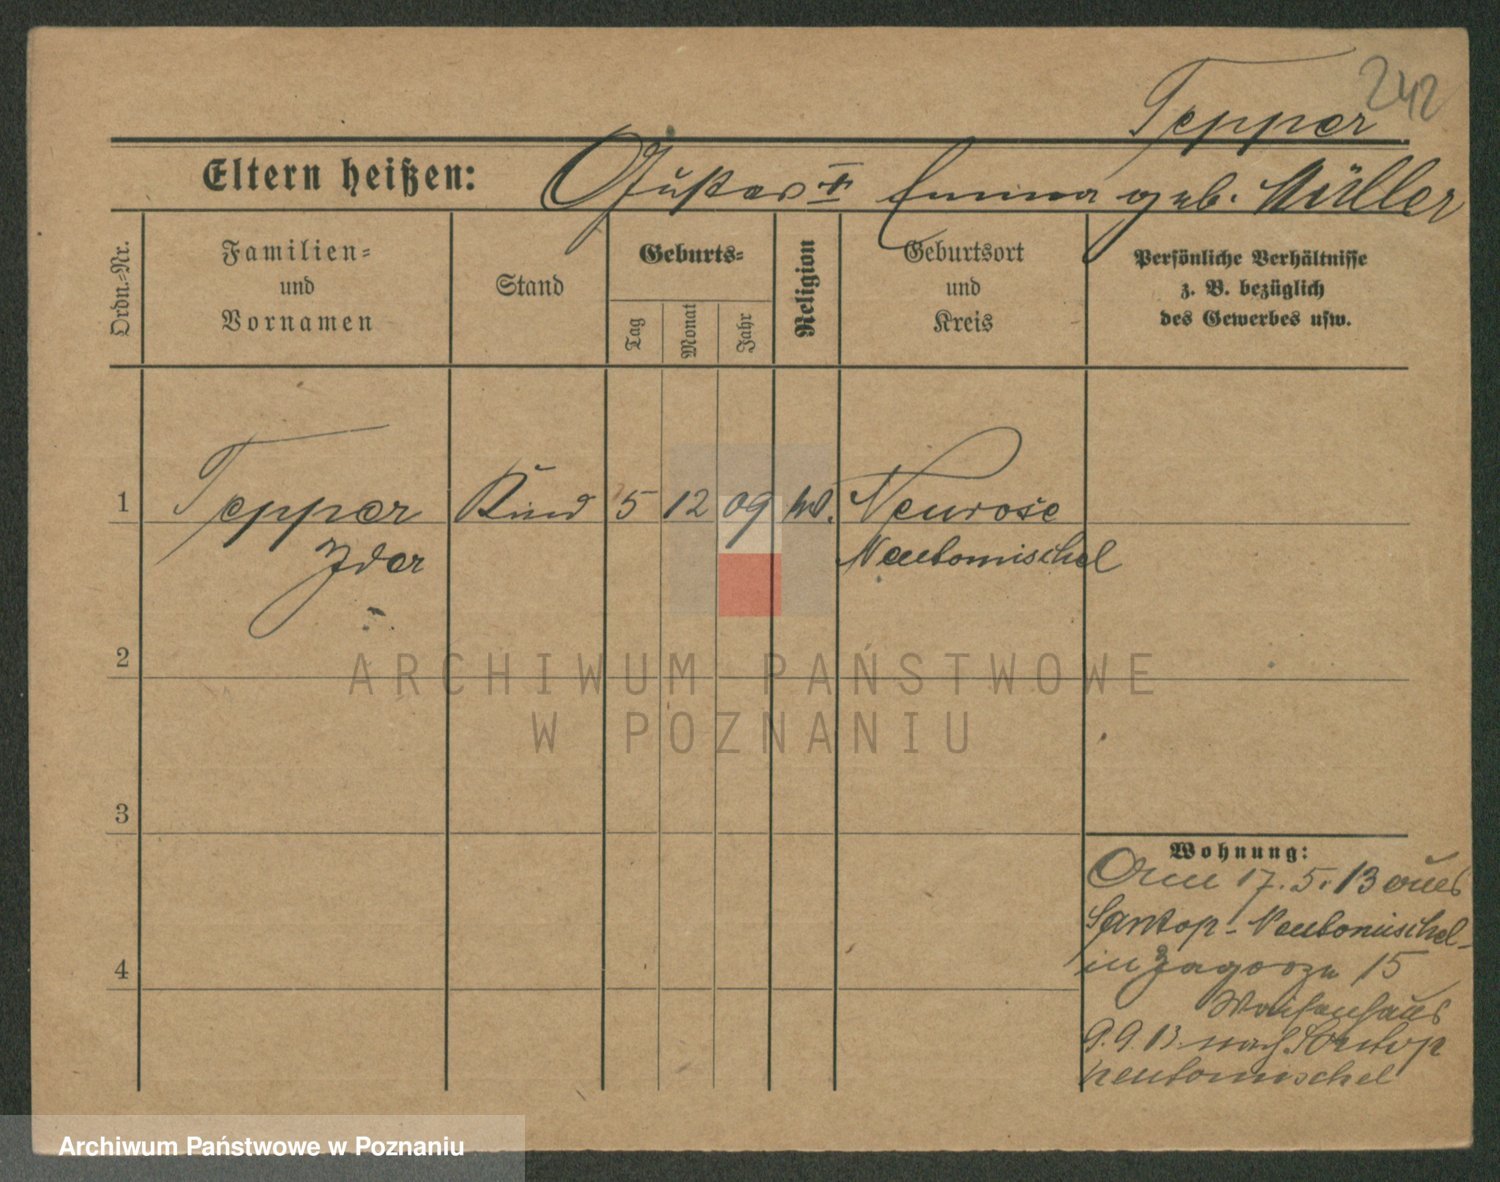 242
Tepper
Eltern heißen: Gustav ✝ Emma geb. Müller
Ordn.-Nr.
Familien-
und
Vornamen
Stand
Geburts-
Tag
Monat
Jahr
Religion
Geburtsort
und
Kreis
Persönliche Verhältnisse
z. B. bezüglich
des Gewerbes usw.
1 Tepper Kind 5 12 09 Neurose
Ida Neutomischel
2
3
4
Wohnung:
Am 17. 5. 13 aus
Santop - Neutomischel -
in Zagorze 15
Waisenhaus
9. 9. 13 nach Santop
Neutomischel
ARCHIWUM PAŃSTWOWE
W POZNANIU
Archiwum Państwowe w Poznaniu